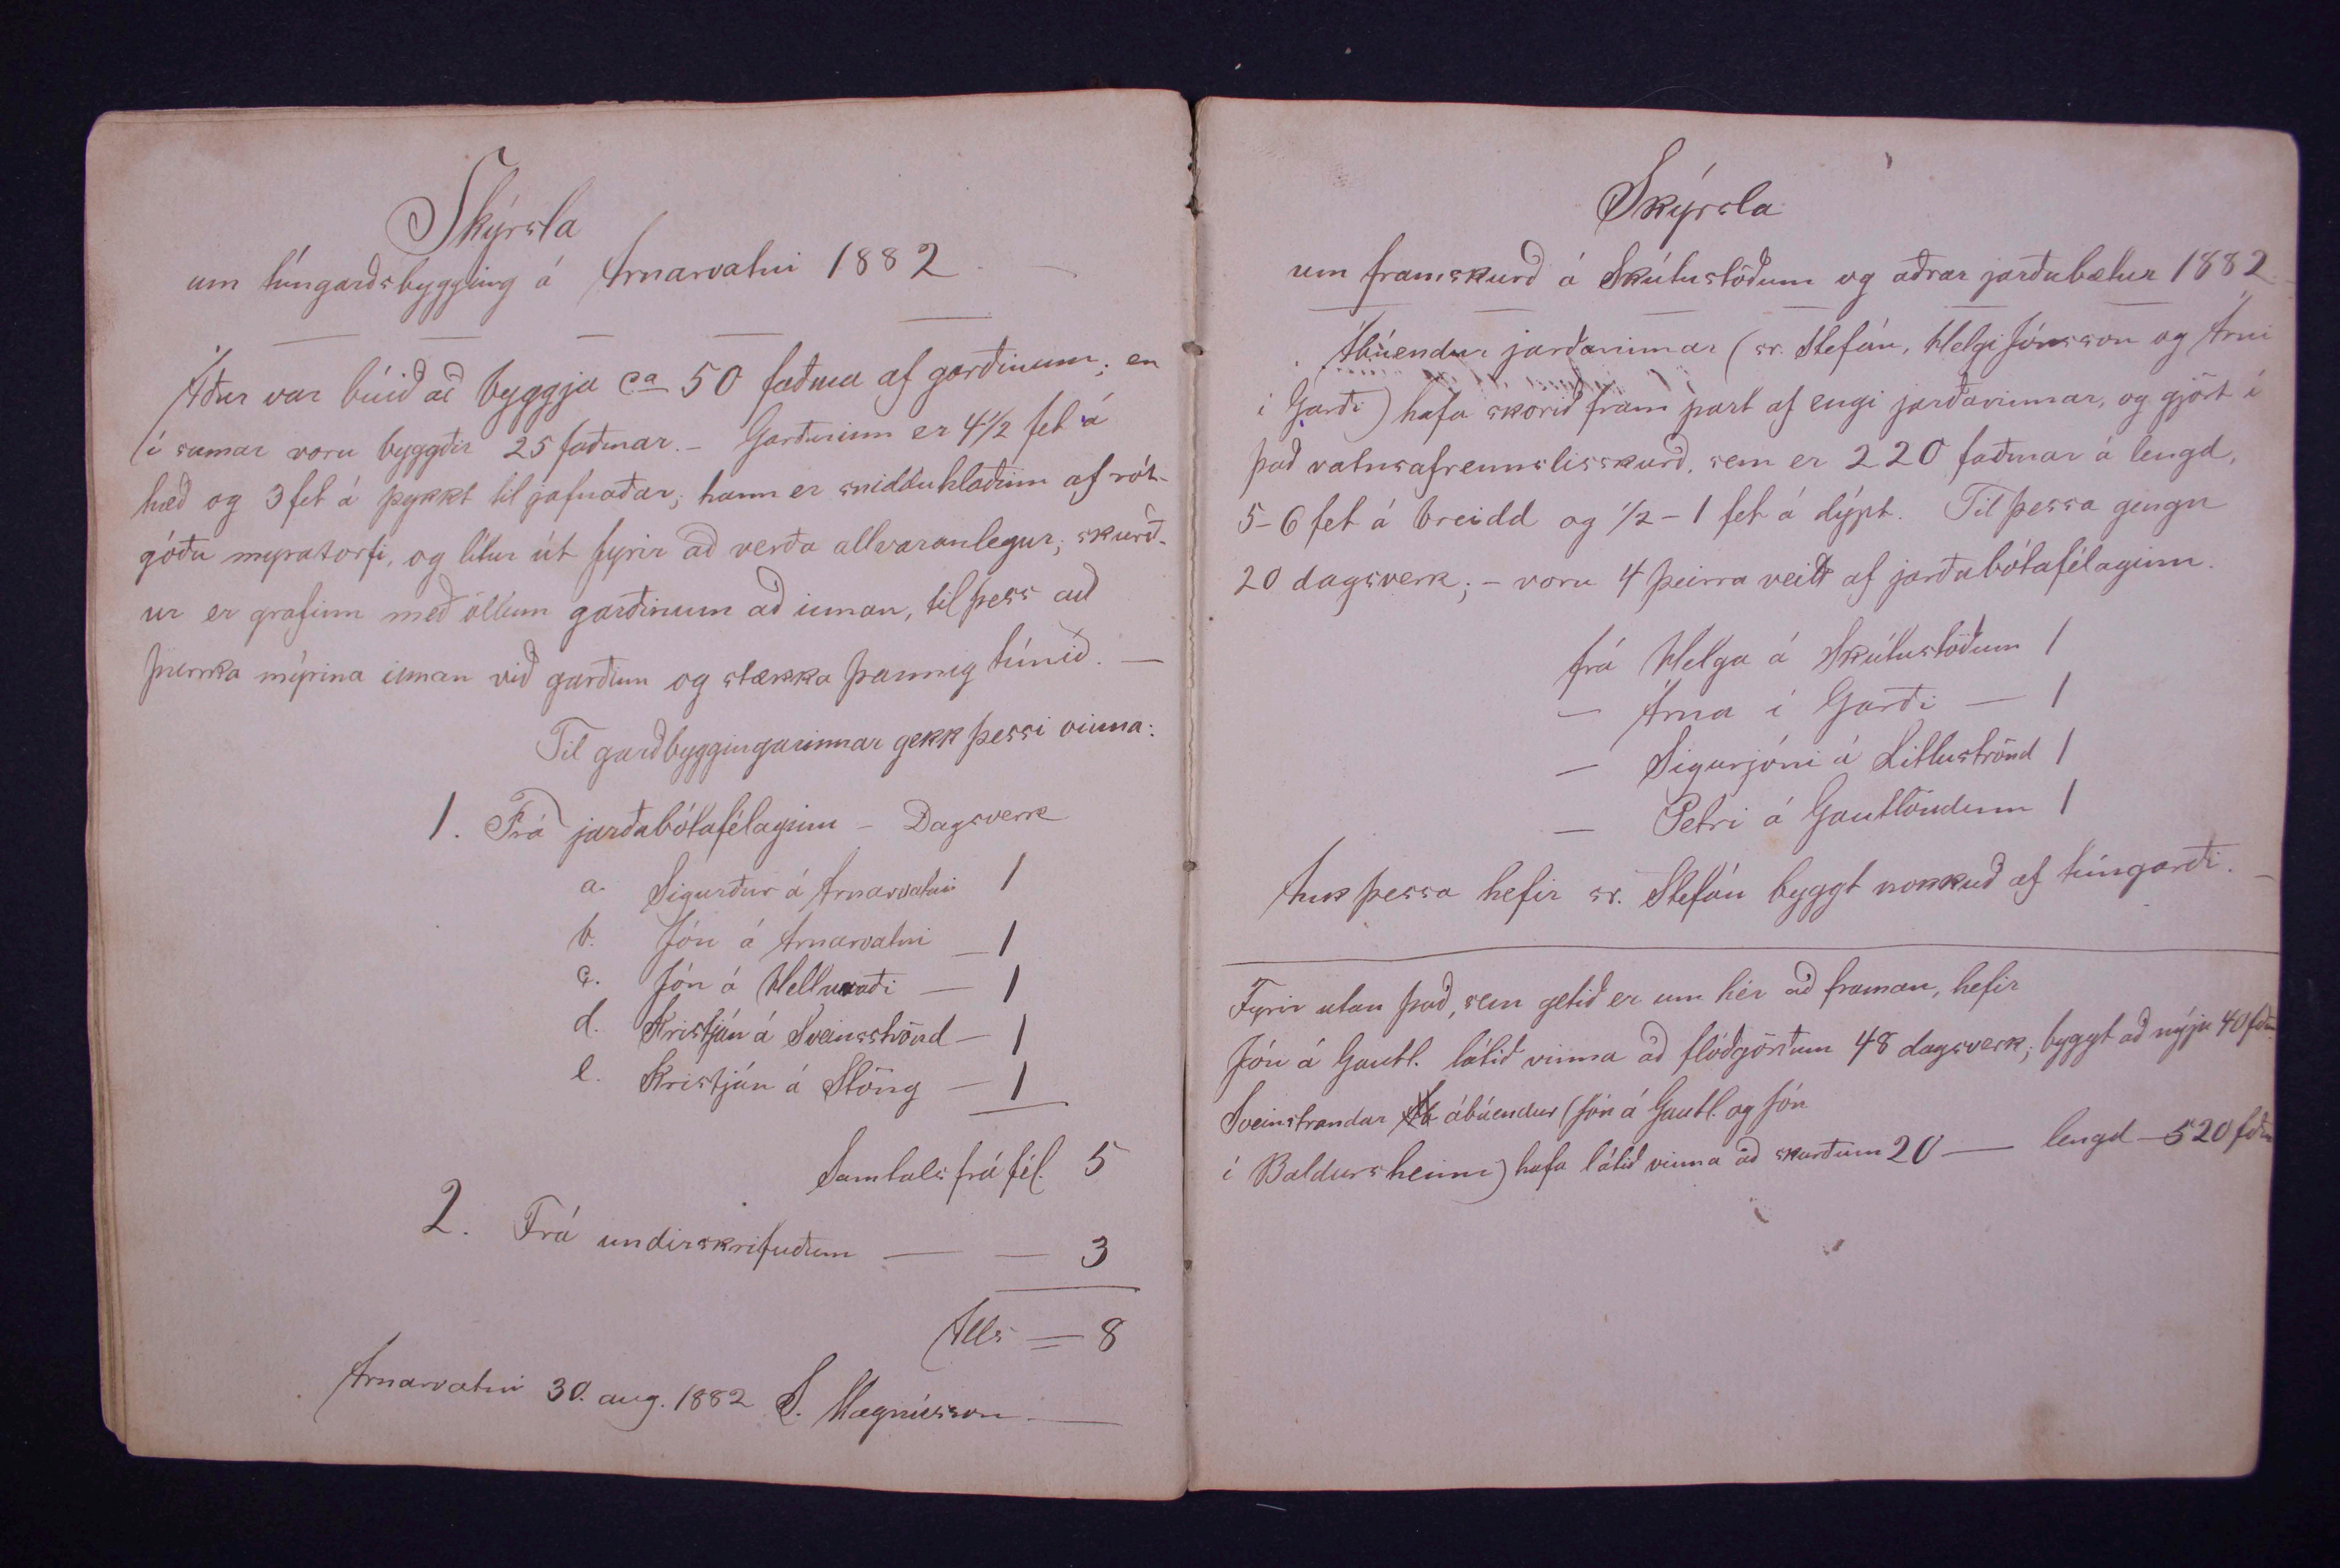 Skýrsla
um túngarðsbygging á Arnarvatni 1882.
Áður var búið að byggja ca 50 faðma af garðinum; en
í sumar voru byggðir 25 faðmar. - Garðurinn er 4 1/2 fet á
hæð og 3 fet á þykkt til jafnaðar; hann er snidduhlaðinn af rót-
góðu myratorfi, og lítur út fyrir að verða allvaranlegur; skurð-
ur er grafinn með öllum garðinum að innan, til þess að
þurrka mýrina innan við garðinn og stækka þannig túnið. —
Til garðbyggingarinnar gekk þessi vinna:
1. Frá jarðabótafélaginu - Dagsverk
a. Sigurður á Arnarvatni 1
b. Jón á Arnarvatni — 1
c. Jón á Helluvaði — 1
d. Kristján á Sveinsströnd — 1
e. Kristján á Stöng — 1
Samtals frá fél. 5
2. Frá undirskrifuðum — — 3
Alls = 8
Arnarvatni 30. aug. 1882 S. Magnússon —
Skýrsla
um framskurð á Skútustöðum og aðrar jarðabætur 1882
Ábúendur jarðarinnar (sr. Stefán, Helgi Jónsson og Árni
í Garði) hafa skorið fram part af engi jarðarinnar, og gjört í
það vatnsafrennslisskurð, sem er 220 faðmar á lengd,
5-6 fet á breidd og 1/2 - 1 fet á dýpt. Til þessa gengu
20 dagsverk; - voru 4 þeirra veitt af jarðabótafélaginu.
frá Helga á Skútustöðum 1
— Árna í Garði — 1
— Sigurjóni á Litluströnd 1
— Petri á Gautlöndum 1
Auk þessa hefir sr. Stefán byggt nokkuð af túngarði. —
Fyrir utan það, sem getið er um hér að framan, hefir
Jón á Gautl. látið vinna að flóðgörðum 48 dagsverk; byggt að nýju 40 fðm.
Sveinstrandar ábúendur (Jón á Gautl. og Jón
í Baldursheimi) hafa látið vinna að skurðum 20 — lengd — 520 fðm